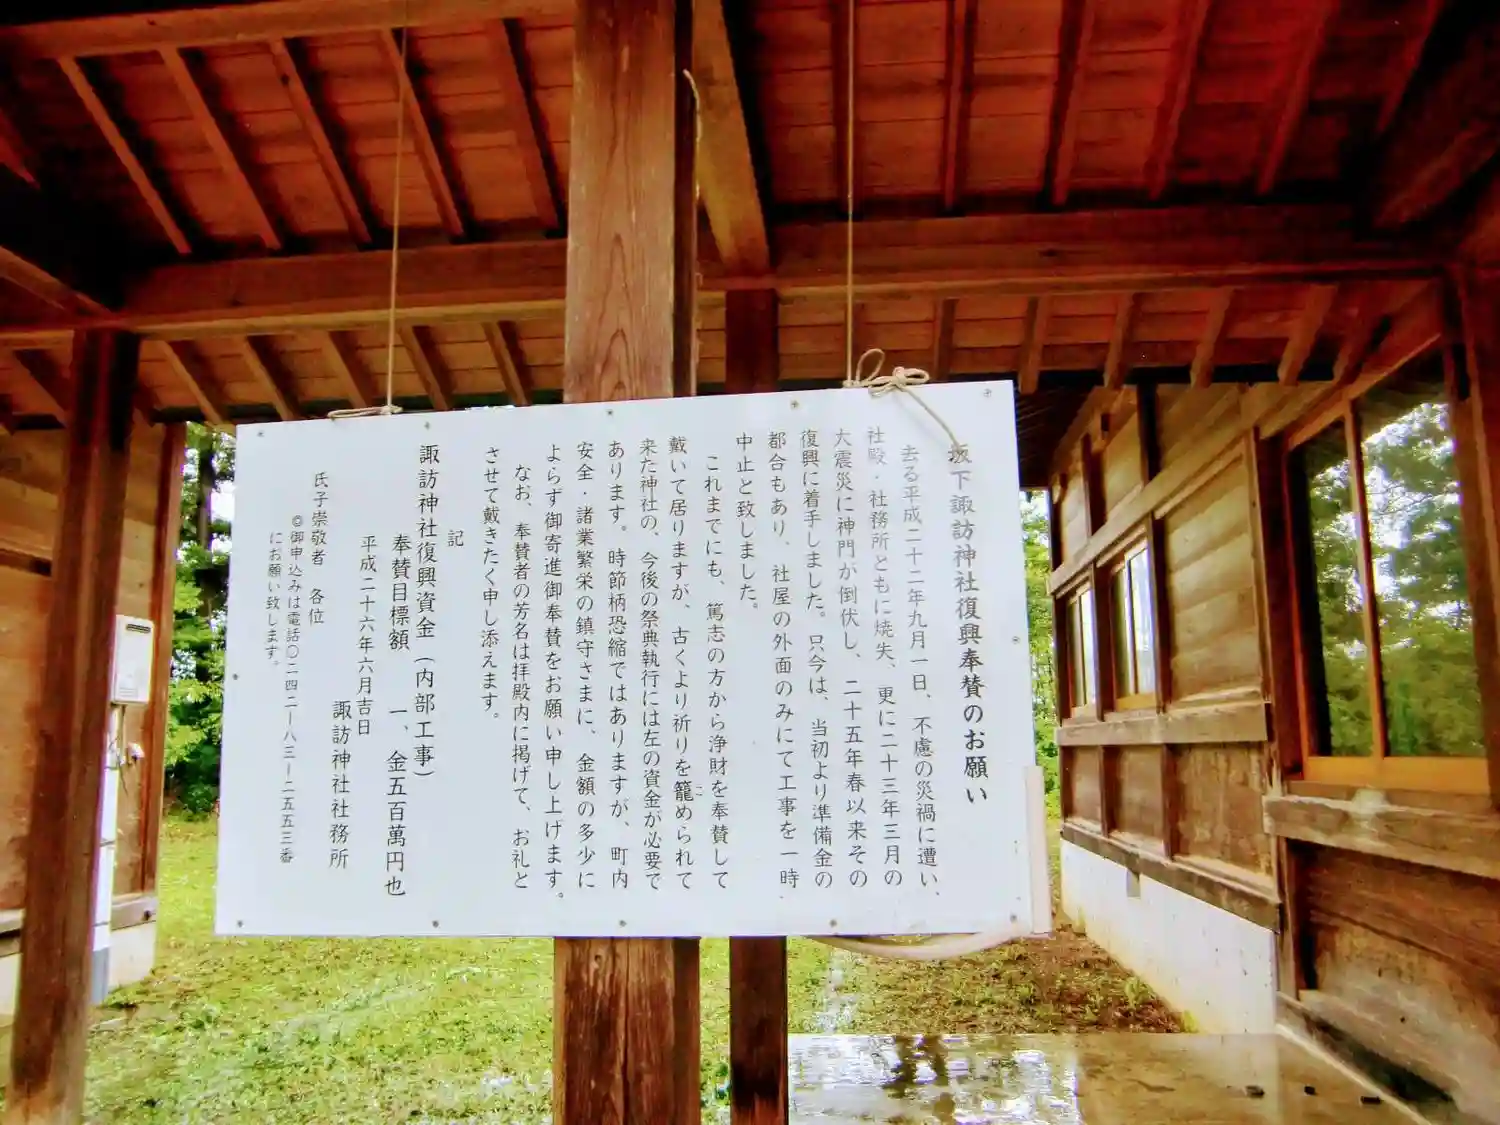 坂下諏訪神社復興奉賛のお願い
去る平成二十二年九月一日、不慮の災禍に遭い、
社殿・社務所ともに焼失、更に二十三年三月の
大震災に神門が倒伏し、二十五年春以来その
復興に着手しました。只今は、当初より準備金の
都合もあり、社屋の外面のみにて工事を一時
中止と致しました。
これまでにも、篤志の方から浄財を奉賛して
戴いて居りますが、古くより祈りを籠められて
来た神社の、今後の祭典執行には左の資金が必要で
あります。時節柄恐縮ではありますが、町内
安全・諸業繁栄の鎮守さまに、金額の多少に
よらず御寄進御奉賛をお願い申し上げます。
なお、奉賛者の芳名は拝殿内に掲げて、お礼と
させて戴きたく申し添えます。
記
諏訪神社復興資金(内部工事)
奉賛目標額 一、金五百萬円也
平成二十六年六月吉日
諏訪神社社務所
氏子崇敬者 各位
◎御申込みは電話〇二四二ー八三ー二五五三番
にお願い致します。